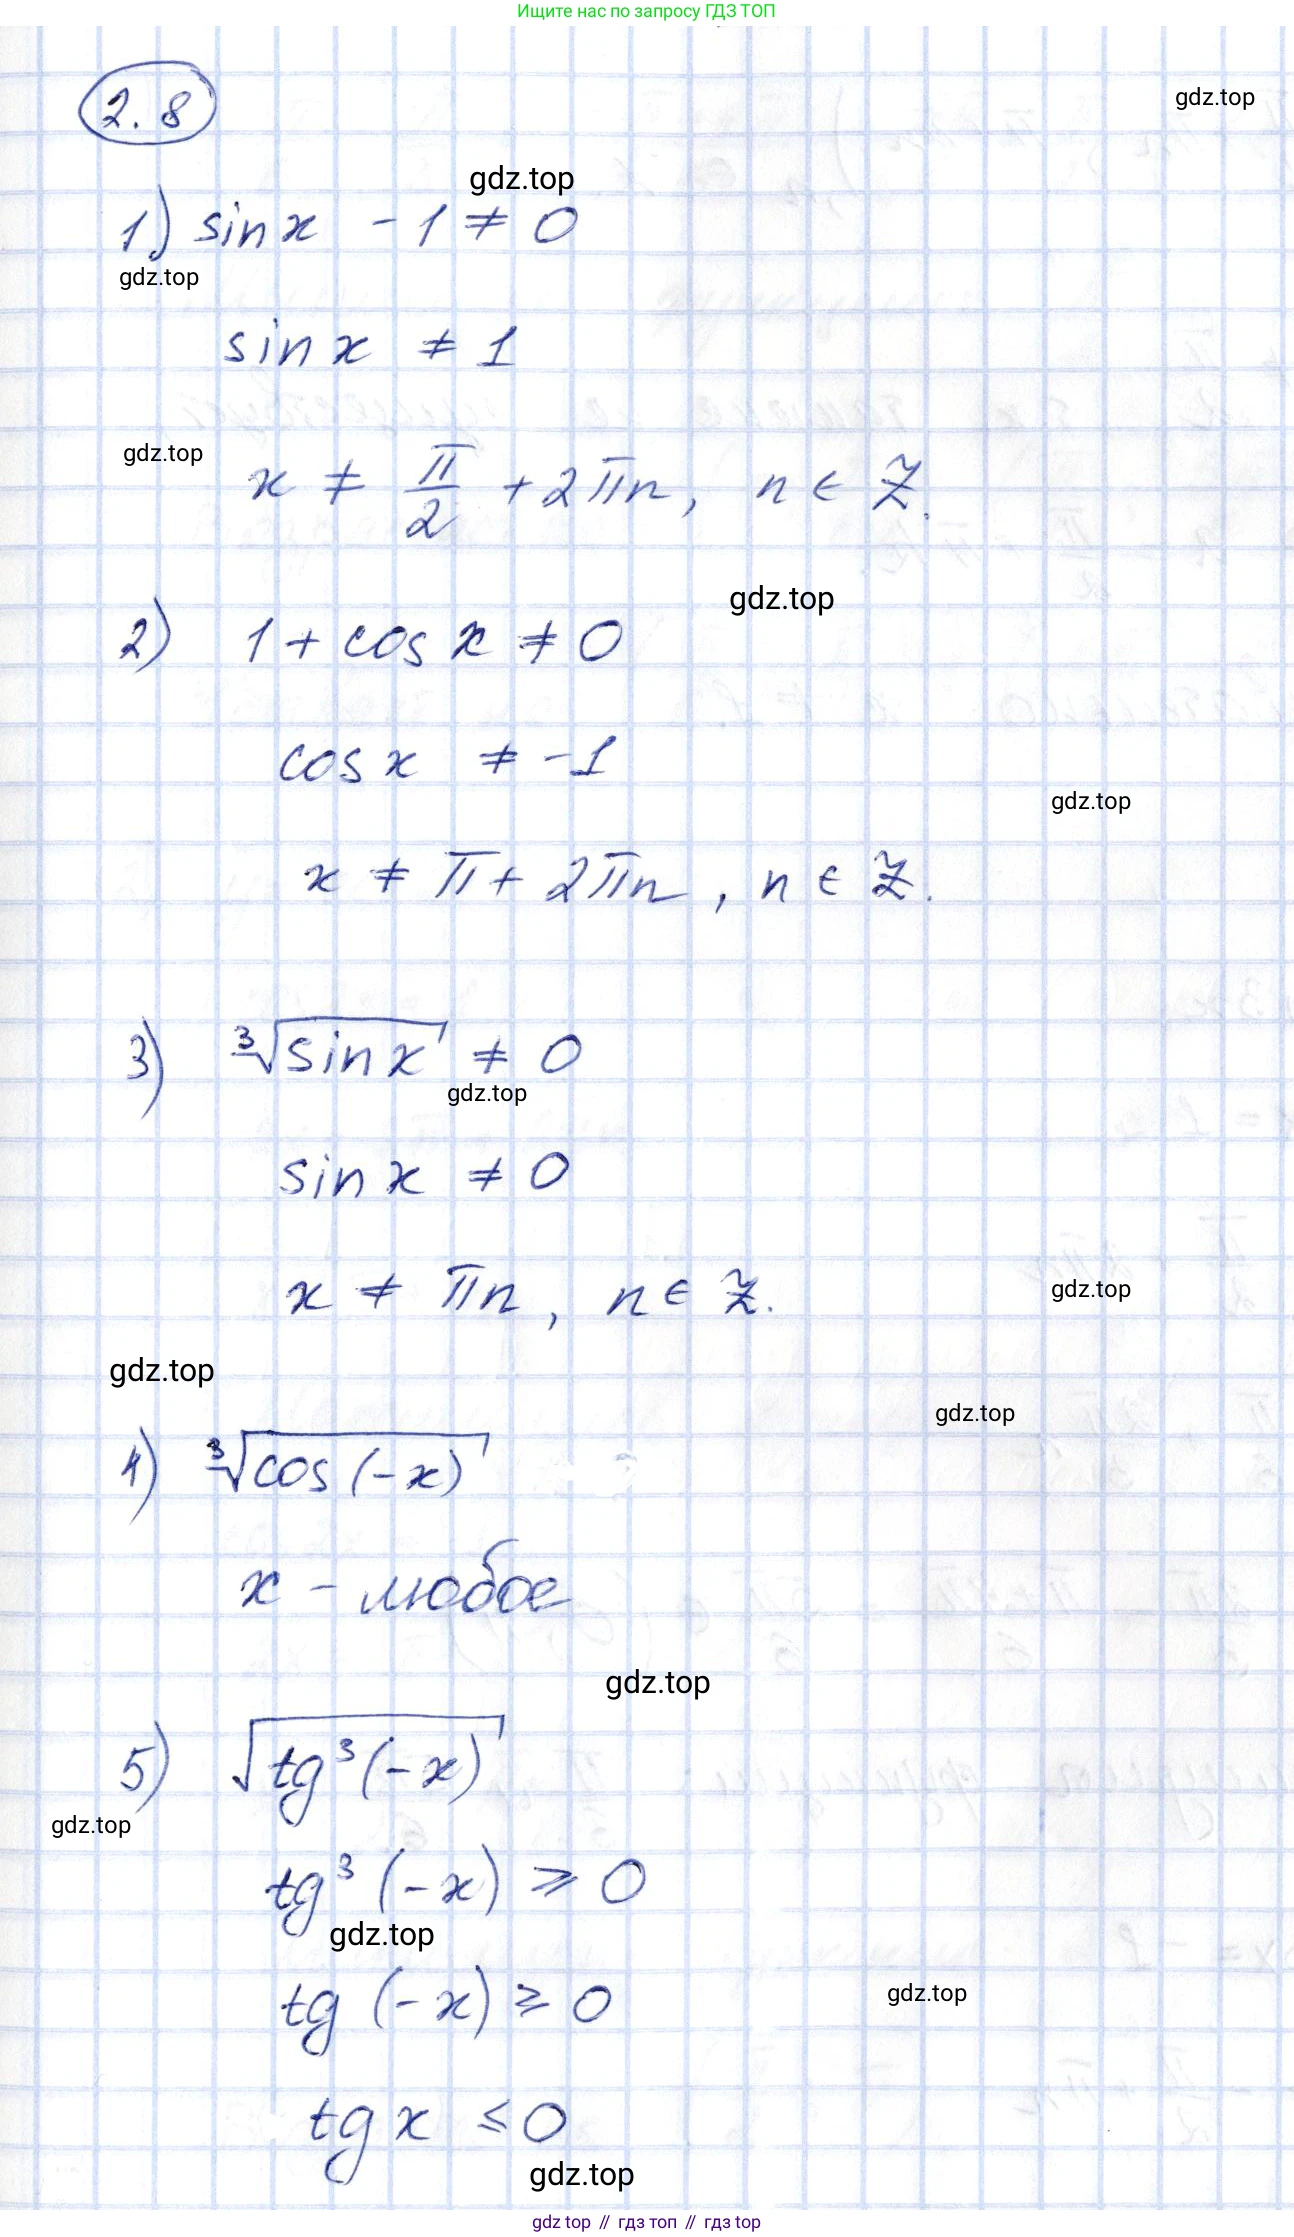 Ищите нас по запросу ГДЗ ТОП
2.8
gdz.top
gdz.top
1) sin x - 1 ≠ 0
gdz.top
sin x ≠ 1
gdz.top
x ≠ π/2 + 2πn, n ∈ Z.
gdz.top
2) 1 + cos x ≠ 0
cos x ≠ -1
gdz.top
x ≠ π + 2πn, n ∈ Z.
3) ∛(sin x) ≠ 0
gdz.top
sin x ≠ 0
x ≠ πn, n ∈ Z.
gdz.top
gdz.top
gdz.top
4) ∛(cos (-x))
x - любое
gdz.top
5) √(tg³(-x))
gdz.top
tg³ (-x) ⩾ 0
gdz.top
tg (-x) ⩾ 0
gdz.top
tg x ⩽ 0
gdz.top
gdz top // гдз топ // gdz top